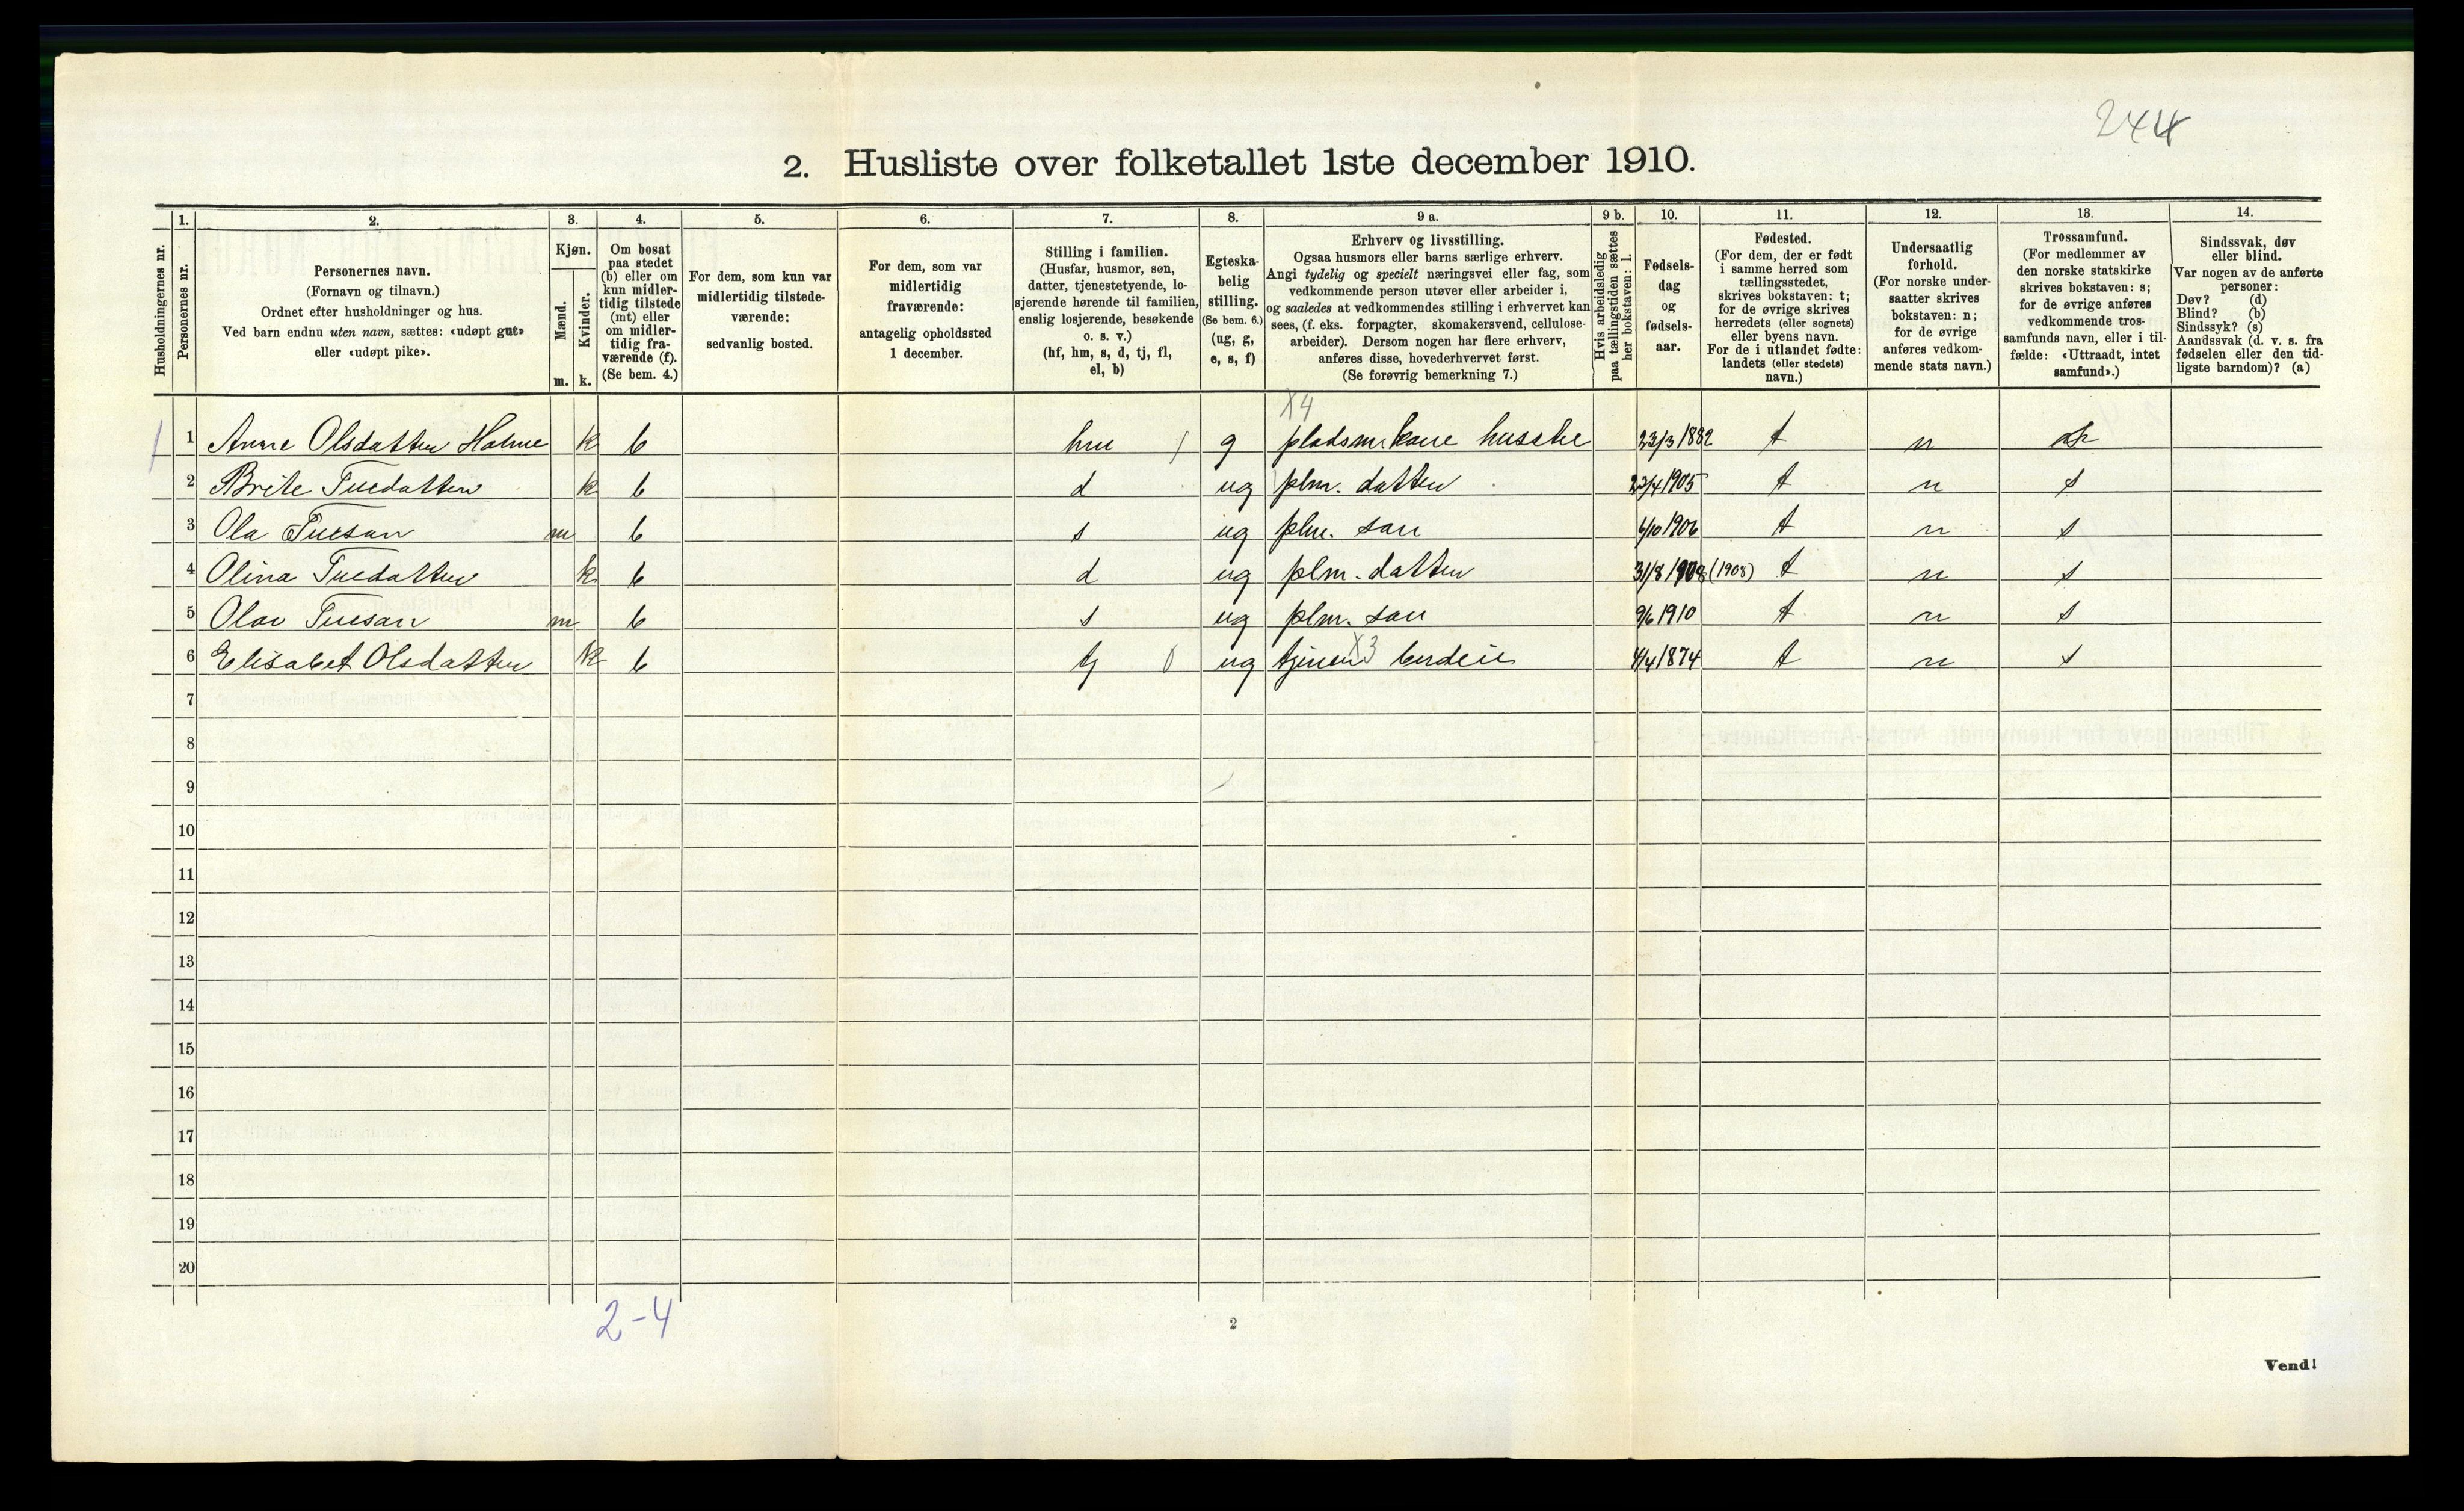 244
2. Husliste over folketallet 1ste december 1910.
Husholdningernes nr.
1.
Personernes nr.
2.
Personernes navn.
(Fornavn og tilnavn.)
Ordnet efter husholdninger og hus.
Ved barn endnu uten navn, sættes: «udøpt gut»
eller «udøpt pike».
3.
Kjøn.
Mænd.
Kvinder.
m. k.
4.
Om bosat
paa stedet
(b) eller om
kun midler-
tidig tilstede
(mt) eller
om midler-
tidig fra-
værende (f).
(Se bem. 4.)
5.
For dem, som kun var
midlertidig tilstede-
værende:
sedvanlig bosted.
6.
For dem, som var
midlertidig
fraværende:
antagelig opholdssted
1 december.
7.
Stilling i familien.
(Husfar, husmor, søn,
datter, tjenestetyende, lo-
sjerende hørende til familien,
enslig losjerende, besøkende
o. s. v.)
(hf, hm, s, d, tj, fl,
el, b)
8.
Egteska-
belig
stilling.
(Se bem. 6.)
(ug, g,
e, s, f)
9 a.
Erhverv og livsstilling.
Ogsaa husmors eller barns særlige erhverv.
Angi tydelig og specielt næringsvei eller fag, som
vedkommende person utøver eller arbeider i,
og saaledes at vedkommendes stilling i erhvervet kan
sees, (f. eks. forpagter, skomakersvend, cellulose-
arbeider). Dersom nogen har flere erhverv,
anføres disse, hovederhvervet først.
(Se forøvrig bemerkning 7.)
9 b.
Hvis arbeidsledig
paa tællingstiden sættes
her bokstaven: l.
10.
Fødsels-
dag
og
fødsels-
aar.
11.
Fødested.
(For dem, der er født
i samme herred som
tællingsstedet,
skrives bokstaven: t;
for de øvrige skrives
herredets (eller sognets)
eller byens navn.
For de i utlandet fødte:
landets (eller stedets)
navn.)
12.
Undersaatlig
forhold.
(For norske under-
saatter skrives
bokstaven: n;
for de øvrige
anføres vedkom-
mende stats navn.)
13.
Trossamfund.
(For medlemmer av
den norske statskirke
skrives bokstaven: s;
for de øvrige anføres
vedkommende tros-
samfunds navn, eller i til-
fælde: «Uttraadt, intet
samfund».)
14.
Sindssvak, døv
eller blind.
Var nogen av de anførte
personer:
Døv? (d)
Blind? (b)
Sindssyk? (s)
Aandssvak (d. v. s. fra
fødselen eller den tid-
ligste barndom)? (a)
X4
1 1 Anne Olsdatter Holme k b g pladsm. kone husstel 23/3 1882 t n
2 Brite Tuedatter k b d ug plm. datter 23/4 1905 t n s
3 Ola Tueson m b s ug plm. søn 6/10 1906 t n s
4 Olina Tuedatter k b d ug plm. datter 31/8 1908 (1908) t n s
5 Olav Tueson m b s ug plm. søn 9/6 1910 t n s
6 Elisabet Olsdatter k b tj 0 ug X3 4/4 1874 t n s
7
8
9
10
11
12
13
14
15
16
17
18
19
20
2-4
2
Vend!